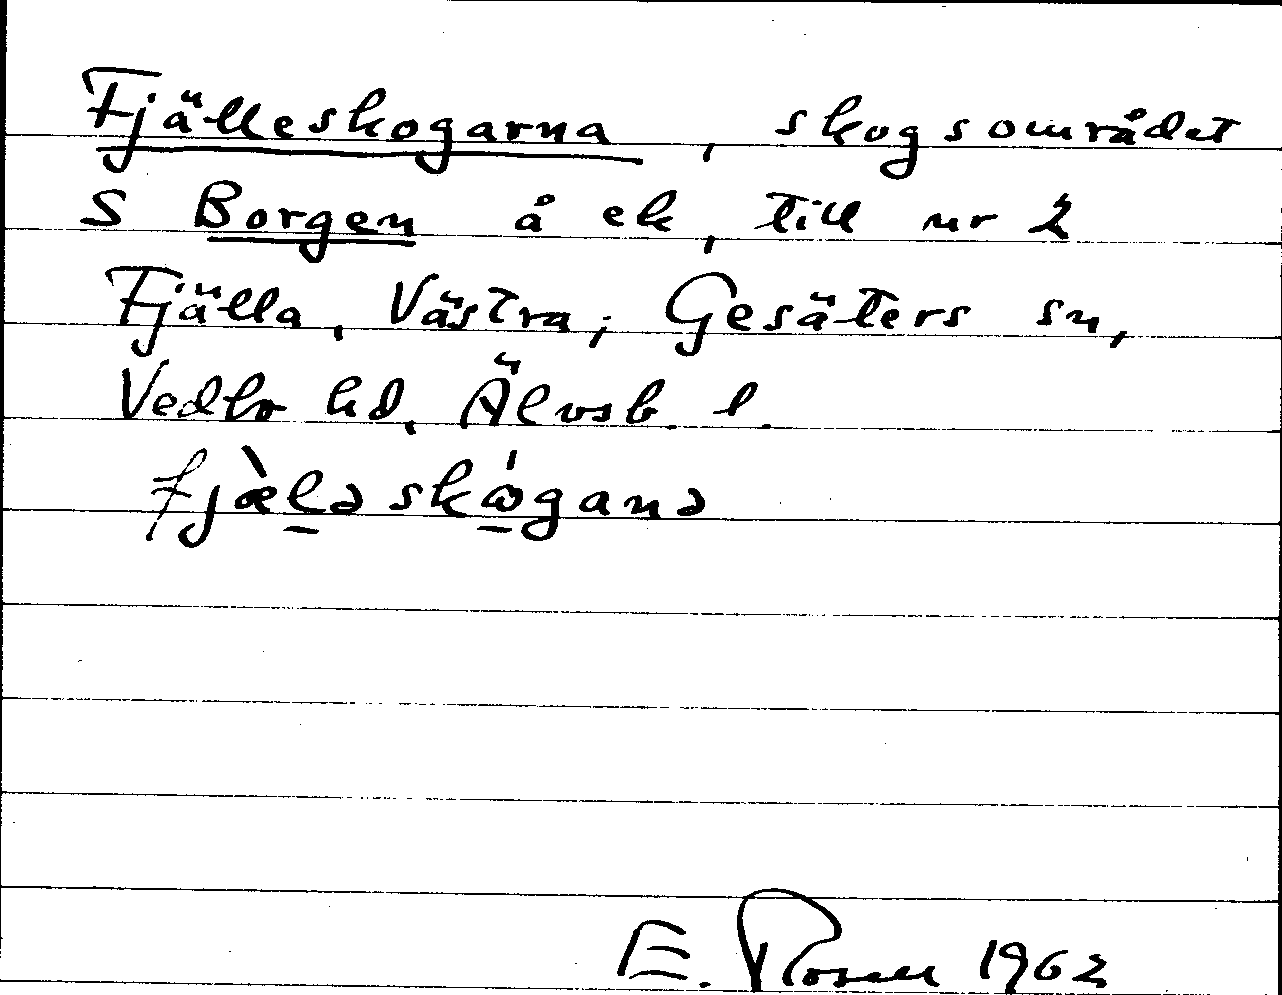 Fjälleskogarna, skogsområdet
S Borgen å ek, till nr 2
Fjälla, Västra; Gesäters sn,
Vedbo hd, Älvsb. l.
fjæ̀lə skω̍ganə
E. Rosell 1962